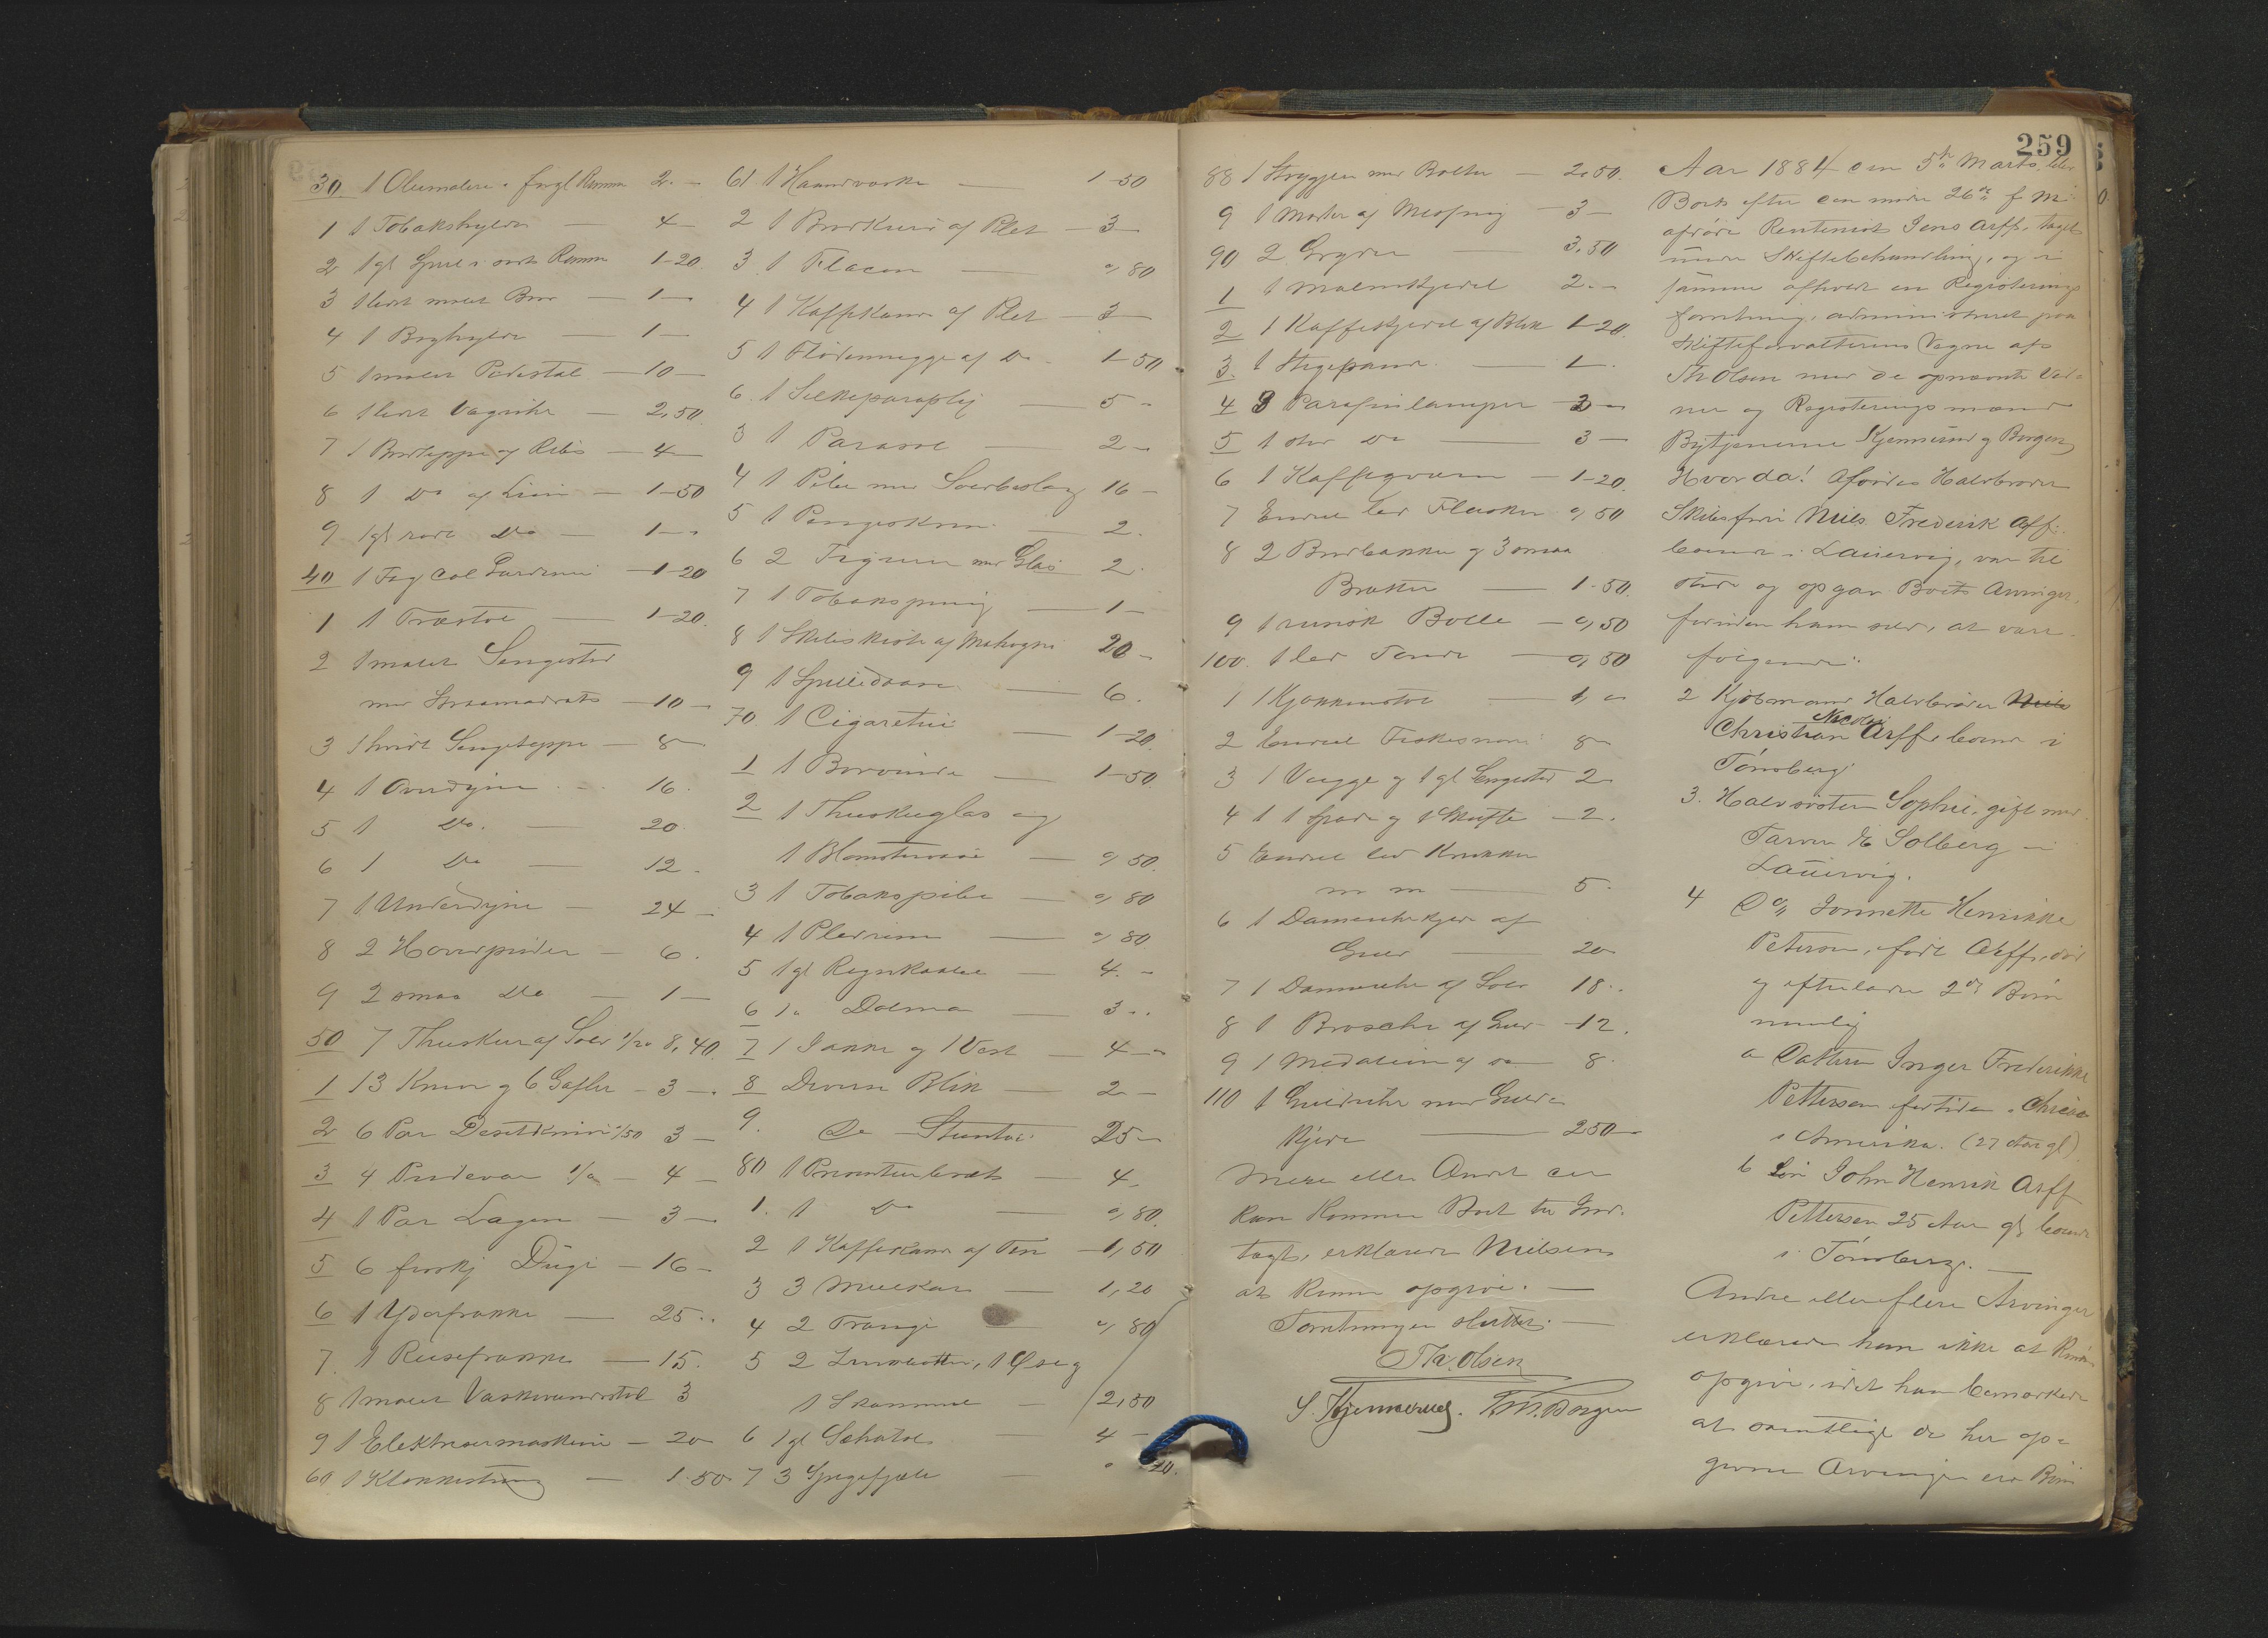 30. 1 Oliemaleri i forgl Ramme 2.-
1 1 Tobakshylde - 4-
2 1 gl Speil i sort Ramme 1-20
3 1 lidet malet Bord - 1-
4 1 Boghylde - 1-
5 1 malet Pidestal - 10-
6 1 lidet Vægeuhr - 2,50.
7 1 Bordteppe af Ribs - 4-
8 1 Do af Liin - 1-50
9 1 gl rødt Do - 1-
40 1 Fag col Gardiner - 1-20
1 1 Træstol - 1-20.
2 1 malet Sengested
med Straamadrats - 10-
3 1 hvidt Sengeteppe - 8-
4 1 Overdyne - 16.
5 1 Do. - 20
6 1 Do - 12.
7 1 Underdyne - 24-
8 2 Hovedpuder - 6.
9 2 smaa Do - 1-
50 7 Theskeer af Sølv 1/20 8,40.
1 13 Knive og 6 Gafler - 3-.
2 6 Par Desertknive /50 3-
3 4 Pudevar - 4-
4 1 Par Lagen - 3-
5 6 forskj Duge - 16-
6 1 Yderfrakke - 25..
7. 1 Reisefrakke - 15.
8 1 malet Vaskevandsstol 3
9 1 Elektricermaskine - 20
60 1 Klokkestreng - 1.50
61 1 Haandvæske - 1-50
2 1 Brødkurv af Plet - 3-
3. 1 Flacon - 0,80
4 1 Kaffekande af Plet - 3-
5 1 Flødemugge af Do - 1-50
6. 1 Silkeparaply - 5-
3 1 Parasol - 2-
4 1 Pibe med Sølvbeslag 16-
5 1 Pengeskrin - 2.
6 2 Figurer med Glas 2.
7 1 Tobakspung - 1-
8 1 Skibskiste af Mahogni 20-
9 1 Spilledaase - 6.
70. 1 Cigaretui - 1-20
1 1 Borvinde - 1-50
2 1 Theskeglas og
1 Blomstervase - 0,50.
3 1 Tobakspibe - 0,80
4 1 Pledrem - 0,80
5 1 gl Regnkaabe - 4.-
6 1 " Dolma - 3..
7 1 Jakke og 1 Vest - 4-
8 Diverse Blik - 2-
9. Do Stentøi 25-
80 1 Presenteerbræt - 4.
1. 1 Do - 0,80.
2 1 Kaffekande af Tin - 1,50
3 3 Melkekar - 1,20
4 2 Trauge - 0,80
5 2 , 1 Øse og
1 Skammel - 2,50
6 1 gl Schatol - 4-
7 3 Spegefjæle - 20.
259
88 1 Strygejern med Bolter - 2.50.
9 1 Morter af Messing - 3-
90 2 Gryder - 3.50
1 1 Malmkjedel 2.-
2 1 Kaffekjedel af Blik 1-20.
3. 1 Stegepande - 1-.
4 3 Parafinlamper - 3-
5 1 stor Do - 3-
6 1 Kaffeqværn - 1-20.
7 Endel led Flasker 0,50
8 2 Brødbakker og 3 smaa
Bratter - 1.50.
9 1 russisk Bolle - 0,50
100. 1 led Tønde - 0,50
1 1 Kjøkkenstol - 1,-
2 Endeel 8-
3 1 Vugge og 1 gl Sengested 2-
4 1 Spade og 1 Skuffe - 2.
5 Endeel led Krukker
m m - 5.
6 1 Dameuhrkjede af
Guld - 20-
7 1 Dameuhr af Sølv 18..
8 1 Brosche af Guld - 12.
9 1 Medalion af do 8.
110 1 Gulduhr med Guld=
kjede - 250-
Mere eller Andet der
kan komme Boet til Ind-
tægt, erklærede Nielsen
at kunne opgive. -
Forretningen sluttet. -
Th. Olsen
S. Kjennerud. Borgen
Aar 1884 den 5te Marts blev
Boet efter den under 26de f M.
afdøde Rentenist Jens Arff, taget
under Skiftebehandling, og i
samme afholdt en Registrerings
forretning, administreret paa
Skifteforvalterens Vegne af
Th Olsen med de opnævnte Vid=
ner og Registreringsmænd
Bytjenerne Kjennerud og Borgen
Hvorda! Afdødes Halvbroder
Skibsfører Niels Frederik Arff.
boende i Laurvig, var til
stede og opgav Boets Arvinger,
foruden ham selv, at være
følgende:
2 Kjøbmand Halvbroder Niels
Nicolai
Christian Arff, boende i
Tønsberg.
3. Halvsøster Sophie, gift med
Farver E Solberg i
Laurvig.
4 Do Jonnette Henrikke
Peterson, født Arff, død
og efterladt 2de Børn
nemlig
a Datteren Inger Frederikke
Pettersen fortiden i
i Amerika. (27 Aar gl)
b Søn John Henrik Arff
Pettersen 25 Aar gl boende
i Tønsberg. -
Andre eller flere Arvinger
erklærede han ikke at kunne
opgive, idet han bemærkede
at samtlige de her op=
givne Arvinger ere Børn